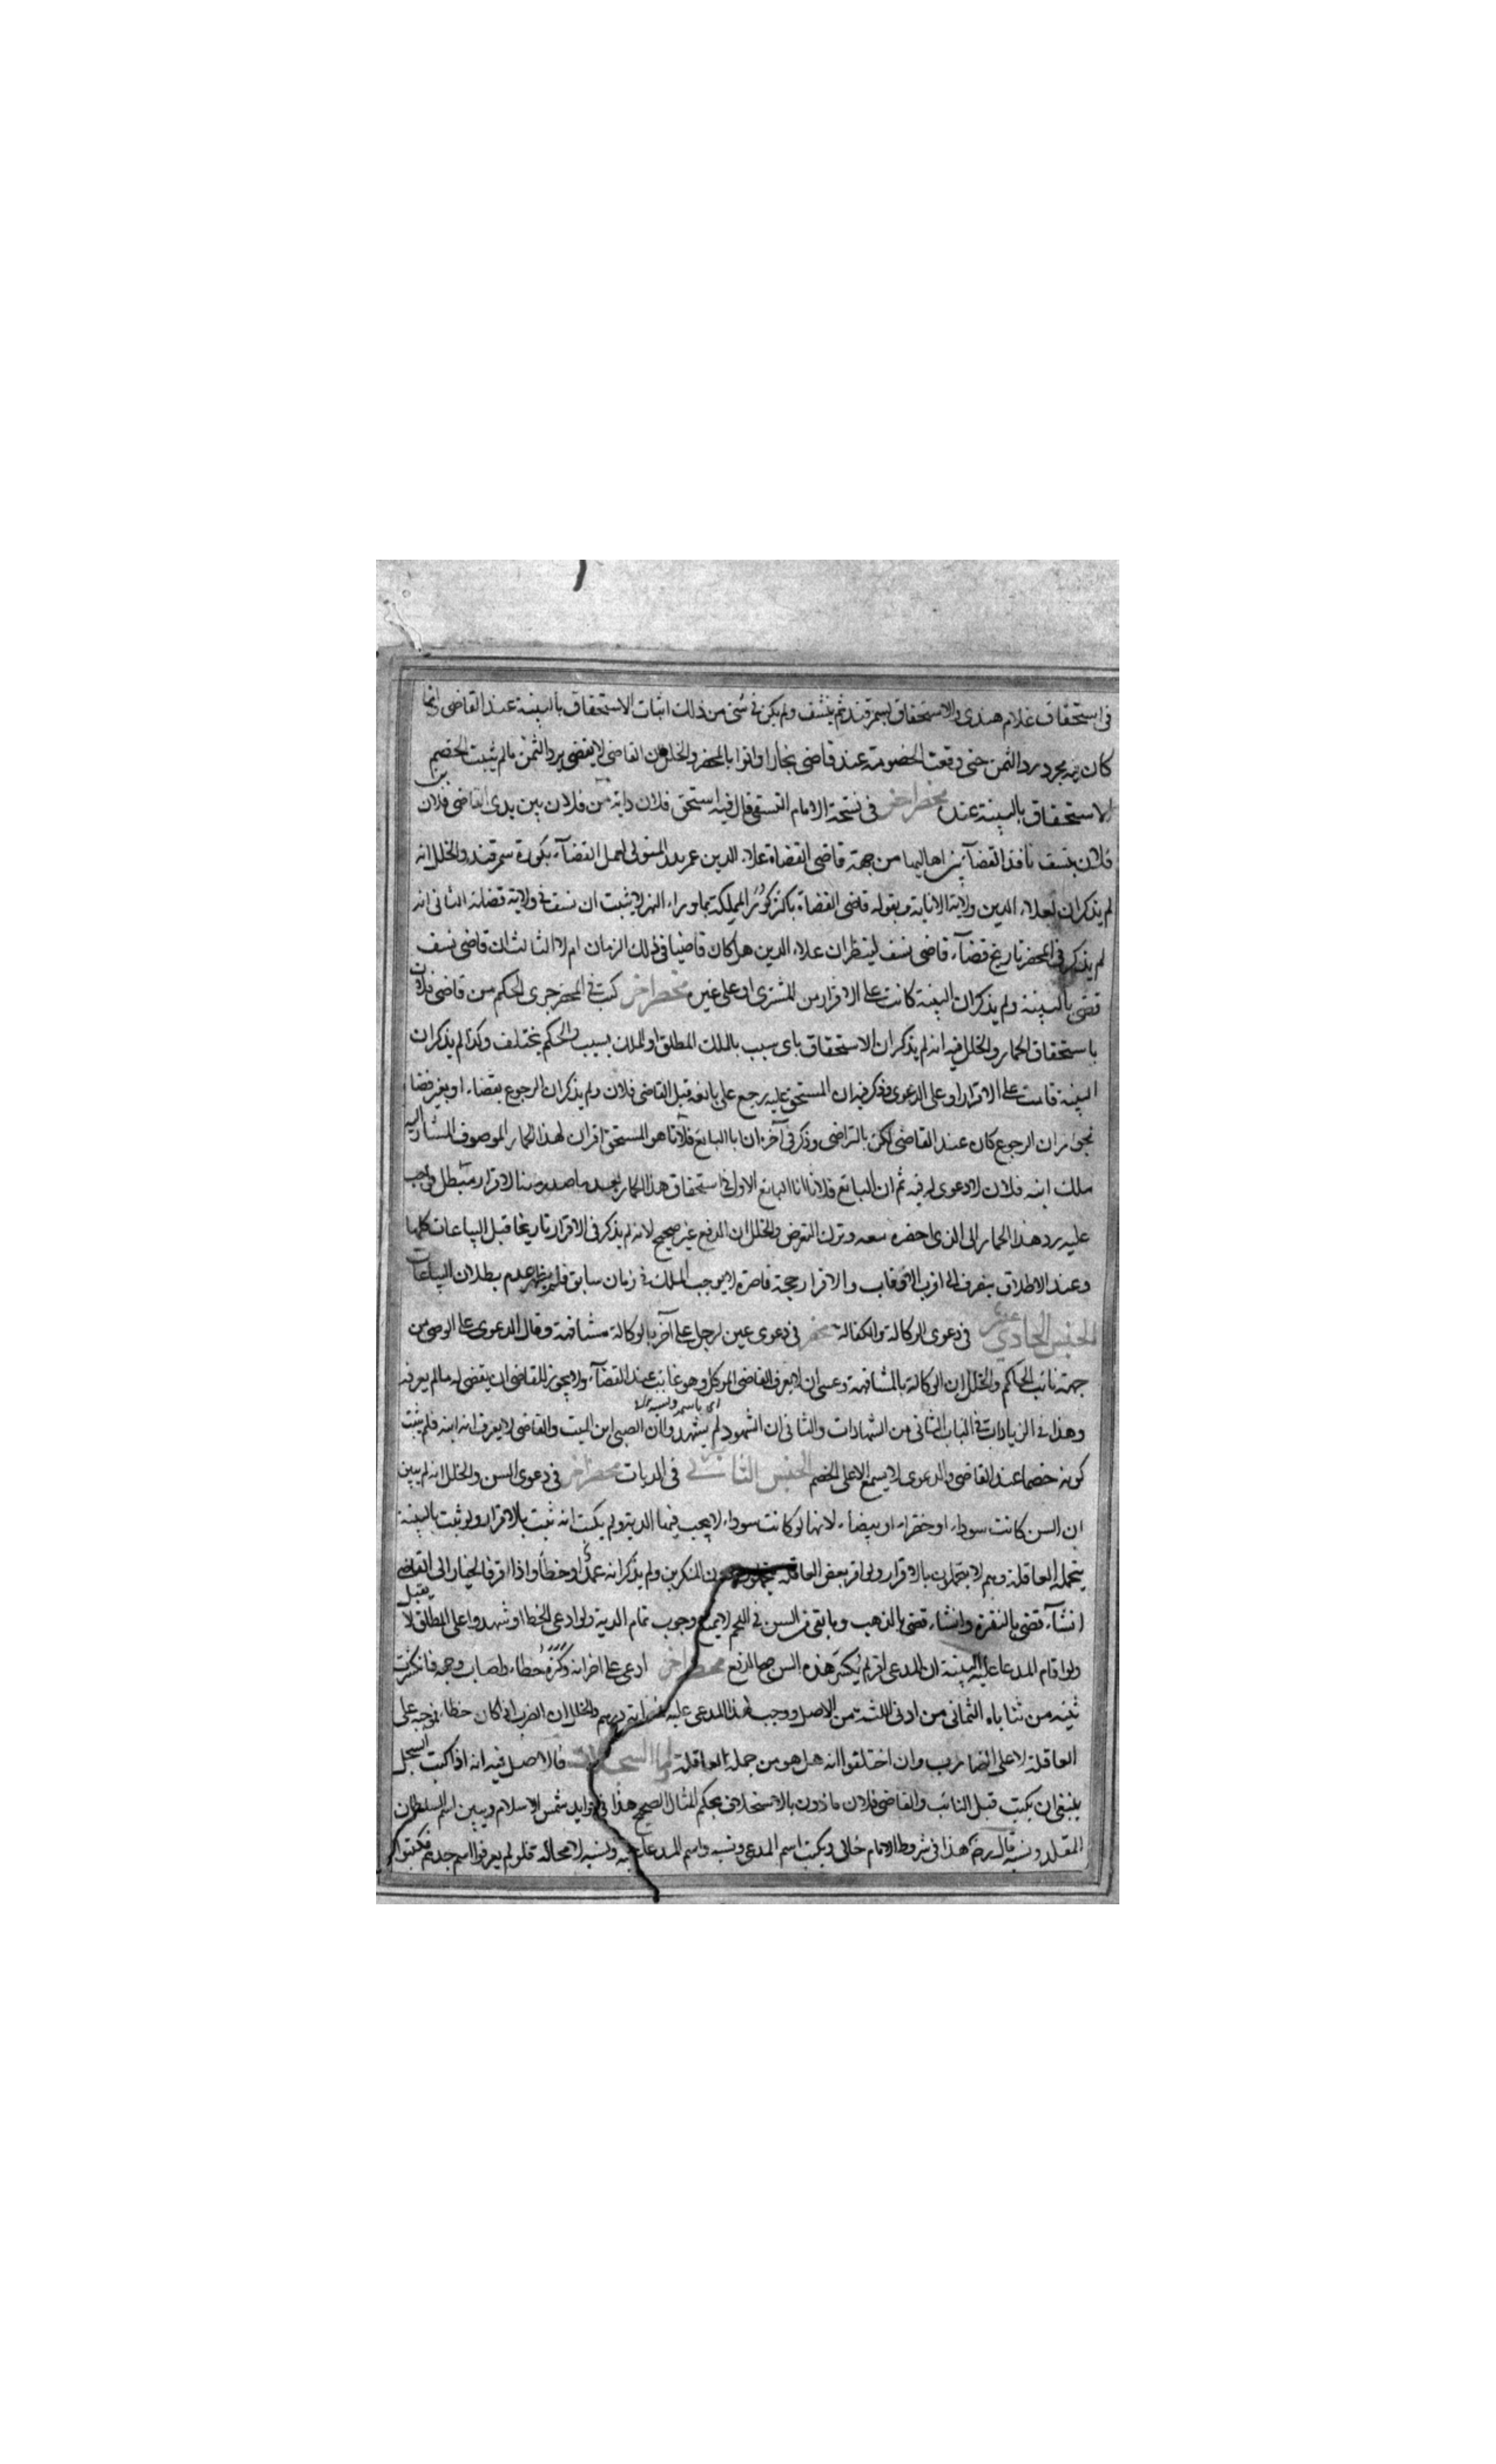 فى استحقاق غلام هندى والاستحقاق بسمرقند ثم بنسف ولم يكن فى شئ من ذلك اثبات الاستحقاق بالبينة عند القاضى انما
كان فيه مجرد رد الثمن حتى وقعت الخصومة عند قاضى بخارا واتوا بالمحضر والخلل ان القاضى لا يقضى برد الثمن ما لم يثبت الخصم
الاستحقاق بالبينة عنده محضر اخر فى نسخة الامام النسفى قال فيه استحق فلان دابة من فلان بن بين يدى القاضى فلان
فلان بنسف نافذ القضآء بين اهاليها من جهة قاضى القضاة علاء الدين عمر المتولى لعمل القضآء بكورة سمرقند والخلل انه
لم يذكر ان لعلاء الدين ولاية الانابة وبقوله قاضى القضاة باكثر كور المملكة بماوراء النهر لا يثبت ان نسف فى ولاية قضائه الثانى انه
لم يذكر فى المحضر تاريخ قضآء قاضى نسف لينظر ان علاء الدين هل كان قاضيا فى ذلك الزمان ام لا الثالث ان قاضى نسف
قضى بالبينة ولم يذكر ان البينة كانت على الاقرار من المشترى او على غيره محضر اخر كتب فى المحضر جرى الحكم من قاضى فلان
باستحقاق الحمار والخلل فيه انه لم يذكر ان الاستحقاق باى سبب بالملك المطلق او الملك بسبب والحكم يختلف وكذا لم يذكر ان
البينة قامت على الاقرار او على الدعوى وذكر فيه ان المستحق عليه رجع على بائعه قبل القاضى فلان ولم يذكر ان الرجوع بقضاء او بغير قضا
بجواز ان الرجوع كان عند القاضى لكن بالتراضى وذكر فى آخره ان البايع فلانا هو المستحق اقر ان لهذا الحمار الموصوف المشار اليه
ملك ابنه فلان لا دعوى له فيه ثم ان البائع فلانا البائع الاول فى استحقاق هذا الحمار بعد ما صدر منه الاقرار مبطل فواجب
عليه رد هذا الحمار الى الذى احضره معه وترك التعرض والخلل ان الدفع غير صحيح لانه لم يذكر فى الاقرار تاريخا قبل البياعات كلها
وعند الاطلاق ينصرف الى اقرب الاوقات والاقرار حجة قاصرة لا يوجب الملك فى زمان سابق فلم يظهر عدم بطلان البياعات
الجنس الحادي عشر فى دعوى الوكالة والكفالة محضر فى دعوى عين لرجل على آخر بالوكالة مشافهة وقال الدعوى على الوصى من
جهة نائب الحاكم والخلل ان الوكالة بالمشافهة وعسى ان لا يعرف القاضى الموكل وهو غائب عند القضآء ولا يجوز للقاضى ان يقضى له ما لم يعرفه
وهذا فى الزيادات فى الباب الثانى من الشهادات والثانى ان الشهود لم يشهدوا ان الصبى ابن الميت والقاضى لا يعرف انه ابنه فلم يثبت
كونه خصما عند القاضى والدعوى لا يسمع الا على الخصم الجنس الثانى فى الديات محضر اخر فى دعوى السن والخلل انه لم يبين
ان السن كانت سوداء او خضراء او بيضاء لانها لو كانت سوداء لا يجب فيها الدية ولم يكتب انه ثبت بالاقرار ولو ثبت بالبينة
يتحمله العاقلة وهم لا يتحملون بالاقرار ولو اقر بعض العاقلة دون المنكرين ولم يذكر انه عمدا او خطأ واذا اقر فالخيار الى القاضى
ان شآء قضى بالنقرة وان شاء قضى بالذهب وما بقى من السن فى اللحم لا يمنع وجوب تمام الدية ولو ادعى الخطا وشهدوا على المطلق لا يقبل
ولو اقام المدعا عليه البينة ان المدعى اقر لم يكن هذه السن صح الدفع محضر اخر ادعى على اخر انه وكزه خطاء واصاب وجهه فانكسرت
ثنيته من ثناياه الثمانى من ادنى اللثة من الاصل ووجب لهذا المدعى عليه درهم والخلل ان الضرب اذا كان خطاء يوجبه على
العاقلة لا على الضارب وان اختلفوا انه هل هو من جملة العاقلة واما السجلات فالاصل فيه انه اذا كتب السجل
ينبغى ان يكتب قبل النائب والقاضى فلان ماذون بالاستخلاف بحكم المثال الصحيح هذا فى فوايد شمس الاسلام ويبين اسم السلطان
المقلد ونسبه قال رضى هذا فى شروط الامام خالى ويكتب اسم المدعى ونسبه واسم المدعا عليه ونسبه لا محالة فلو لم يعرفوا اسم جده فكتبوا